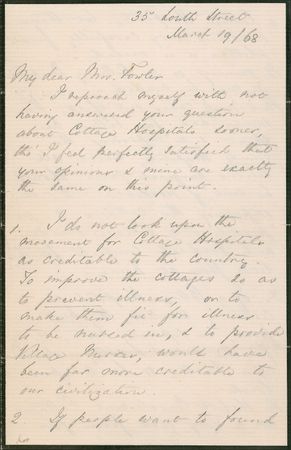 35 South Street
March 19/68
My dear Mrs. Fowler
I reproach myself with not
having answered your question
about Cottage Hospitals sooner,
tho' I feel perfectly satisfied that
your opinions & mine are exactly
the same on this point.
1. I do not look upon the
movement for Cottage Hospitals
as creditable to the country.
To improve the cottages so as
to prevent illness, or to
make them fit for illness
to be nursed in, & to provide
Village Nurses, would have
been far more creditable to
our civilization.
2 If people want to found